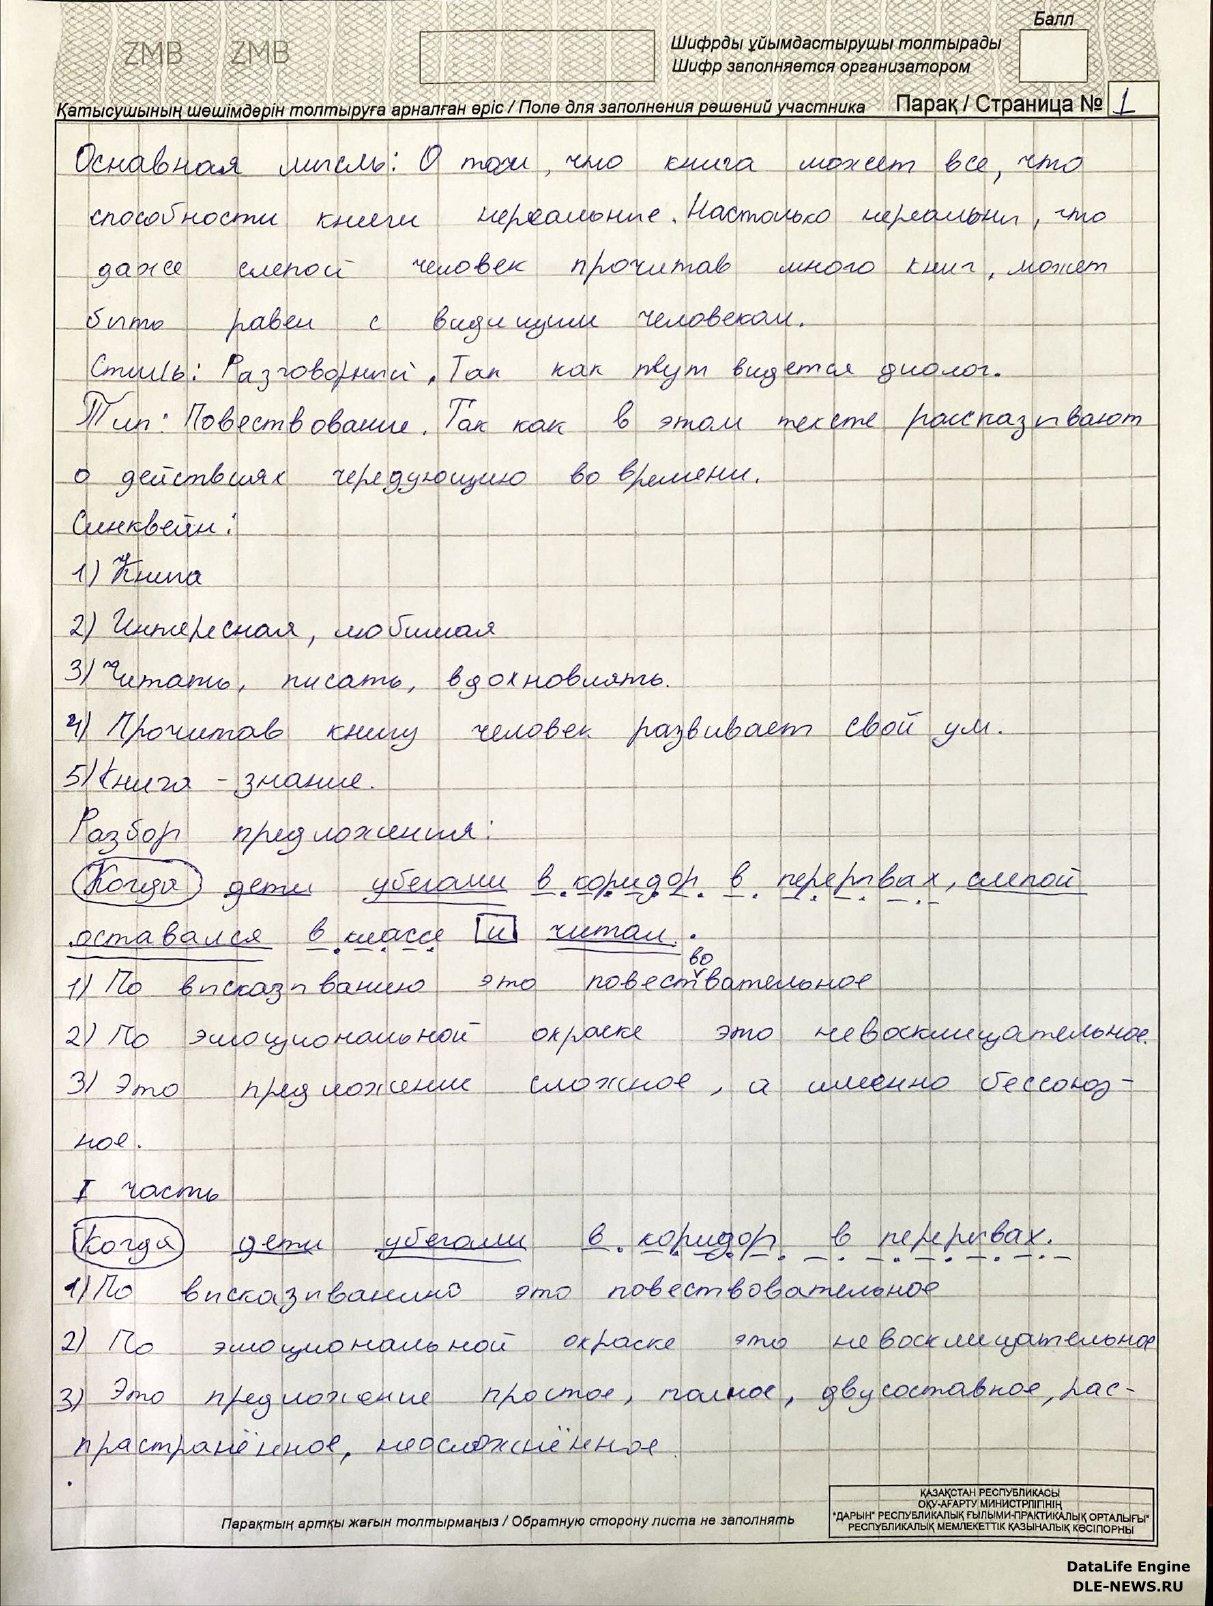 ZMB ZMB
Балл
Шифрды ұйымдастырушы толтырады
Шифр заполняется организатором
Қатысушының шешімдерін толтыруға арналған өріс / Поле для заполнения решений участника Парақ / Страница № 1
Основная мысль: О том, что книга может все, что
способности книги нереальные. Настолько нереальны, что
даже слепой человек прочитав много книг, может
быть равен с видищим человеком.
Стиль: Разговорный. Так как тут видется диолог.
Тип: Повествование. Так как в этом тексте рассказывают
о действиях чередующию во времени.
Синквейн:
1) Книга
2) Интересная, любимая
3) Читать, писать, вдохновлять.
4) Прочитав книгу человек развивает свой ум.
5) Книга - знание.
Разбор предложения:
Когда дети убегали в коридор в перерывах, слепой
оставался в классе и читал.
1) По высказыванию это повествовательное
2) По эмоциональной окраске это невосклицательное.
3) Это предложение сложное, а именно бессоюз-
ное.
I часть
Когда дети убегали в коридор в перерывах.
1) По высказыванию это повествовательное
2) По эмоциональной окраске это невосклицательное
3) Это предложение простое, полное, двусоставное, рас-
прастранённое, неосложнённое
Парақтың артқы жағын толтырмаңыз / Обратную сторону листа не заполнять
ҚАЗАҚСТАН РЕСПУБЛИКАСЫ
ОҚУ-АҒАРТУ МИНИСТРЛІГІНІҢ
"ДАРЫН" РЕСПУБЛИКАЛЫҚ ҒЫЛЫМИ-ПРАКТИКАЛЫҚ ОРТАЛЫҒЫ"
РЕСПУБЛИКАЛЫҚ МЕМЛЕКЕТТІК ҚАЗЫНАЛЫҚ КӘСІПОРНЫ
DataLife Engine
DLE-NEWS.RU